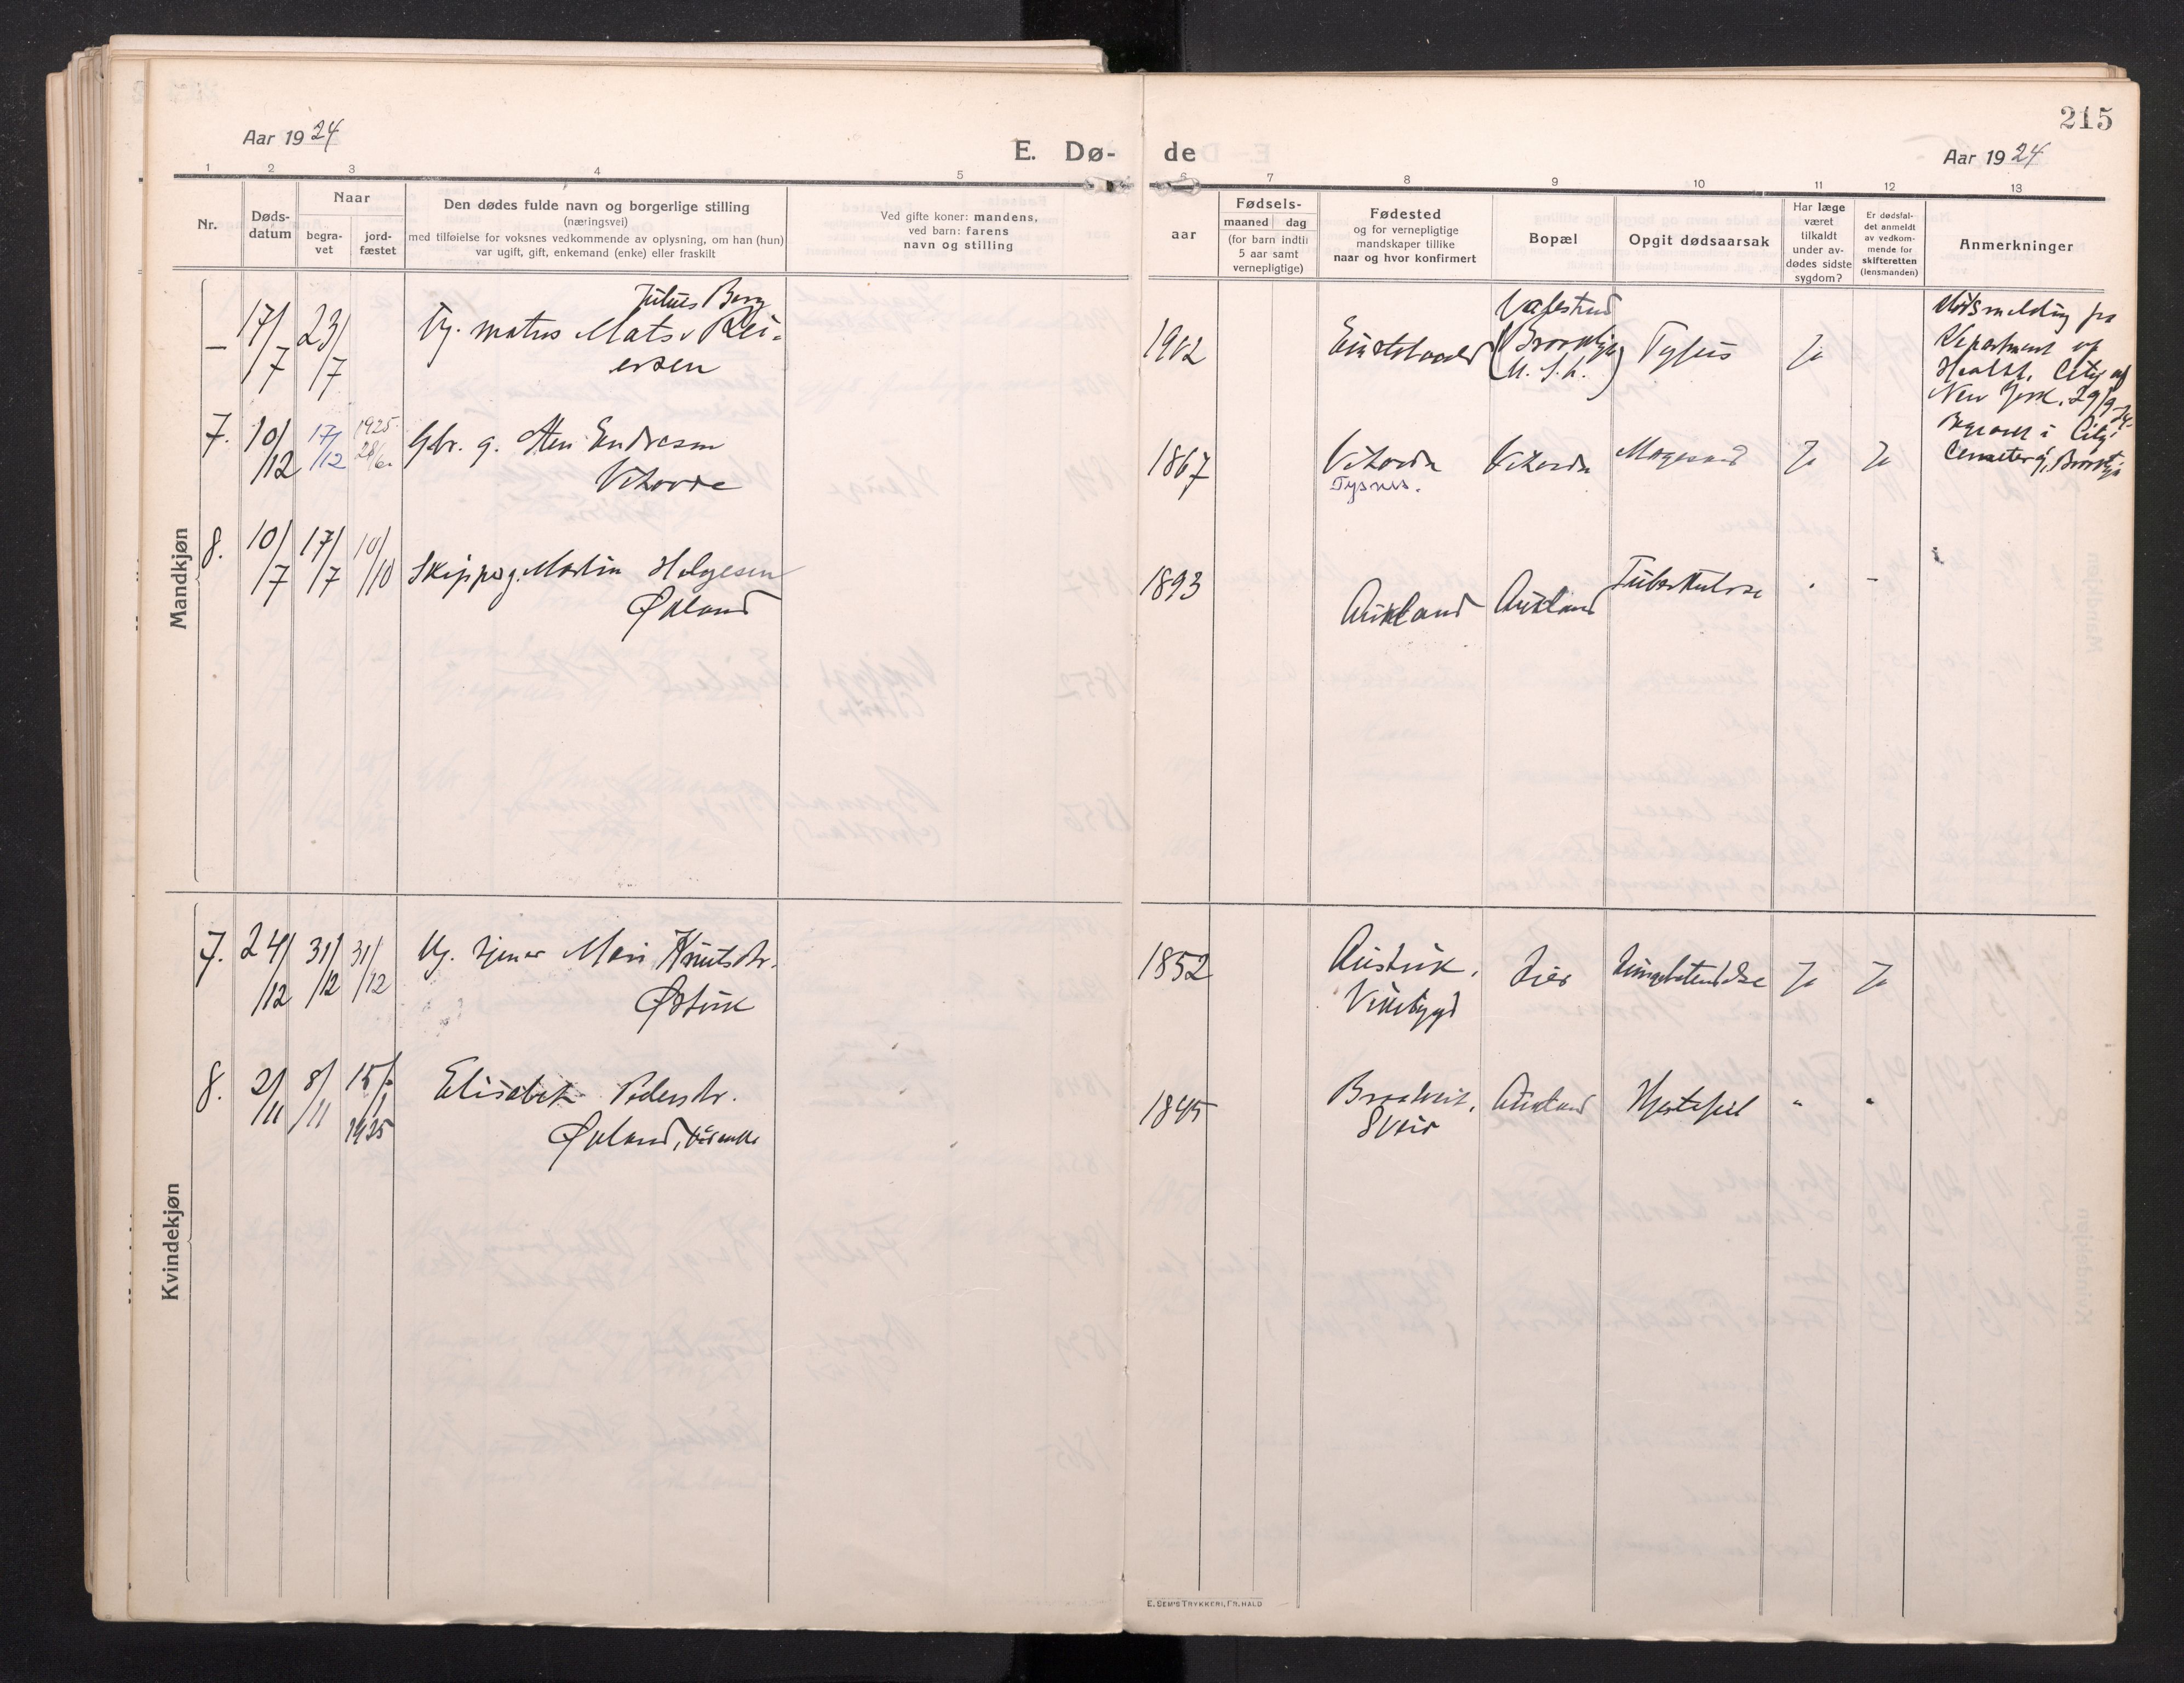 215
Aar 1924
E. Dø-
de
Aar 1924
1 2 3 4 5 6 7 8 9 10 11 12 13
Nr.
Døds-
datum
Naar
begra-
vet
jord-
fæstet
Den dødes fulde navn og borgerlige stilling
(næringsvei)
med tilføielse for voksnes vedkommende av oplysning, om han (hun)
var ugift, gift, enkemand (enke) eller fraskilt
Ved gifte koner: mandens,
ved barn: farens
navn og stilling
Fødsels-
aar
maaned dag
(for barn indtil
5 aar samt
vernepligtige)
Fødested
og for vernepligtige
mandskaper tillike
naar og hvor konfirmert
Bopæl
Opgit dødsaarsak
Har læge
været
tilkaldt
under av-
dødes sidste
sygdom?
Er dødsfal-
det anmeldt
av vedkom-
mende for
skifteretten
(lensmanden)
Anmerkninger
Mandkjøn
– 17/7 23/7
Julius Berg
Ug. matros Mats Rei-
ersen
1902
Valestrand
(Brooklyn
U. S. A.)
Tyfus
Ja
Dødsmelding fra
Department of
Health, City of
New York. 29/9 24.
Begravet i City
Cemetery, Brooklyn
7. 10/12 17/12 1925 28/6
Gbr. g. Sten Endresen
Vihovde
1867
Vihovde
Tysnes.
Vihovde
Mavesaar
Ja
Ja
8. 10/7 17/7 10/10
Skipper g. Martin Helgesen
Økland
1893
Aukland
Aukland
Tuberkulose
"
–
Kvindekjøn
7. 24/12 31/12 31/12
Ug. Mari Knutsdtr.
Østvik
1852
Austvik,
Vikebygd
Lier
Lungebetendelse
Ja
Ja
8. 2/11 8/11 15/1 1925
Elisabet Pedersdtr.
Økland,
1845
Braatveit,
Sveio
Aukland
Hjertefeil
"
"
E. SEM'S TRYKKERI, FR.HALD